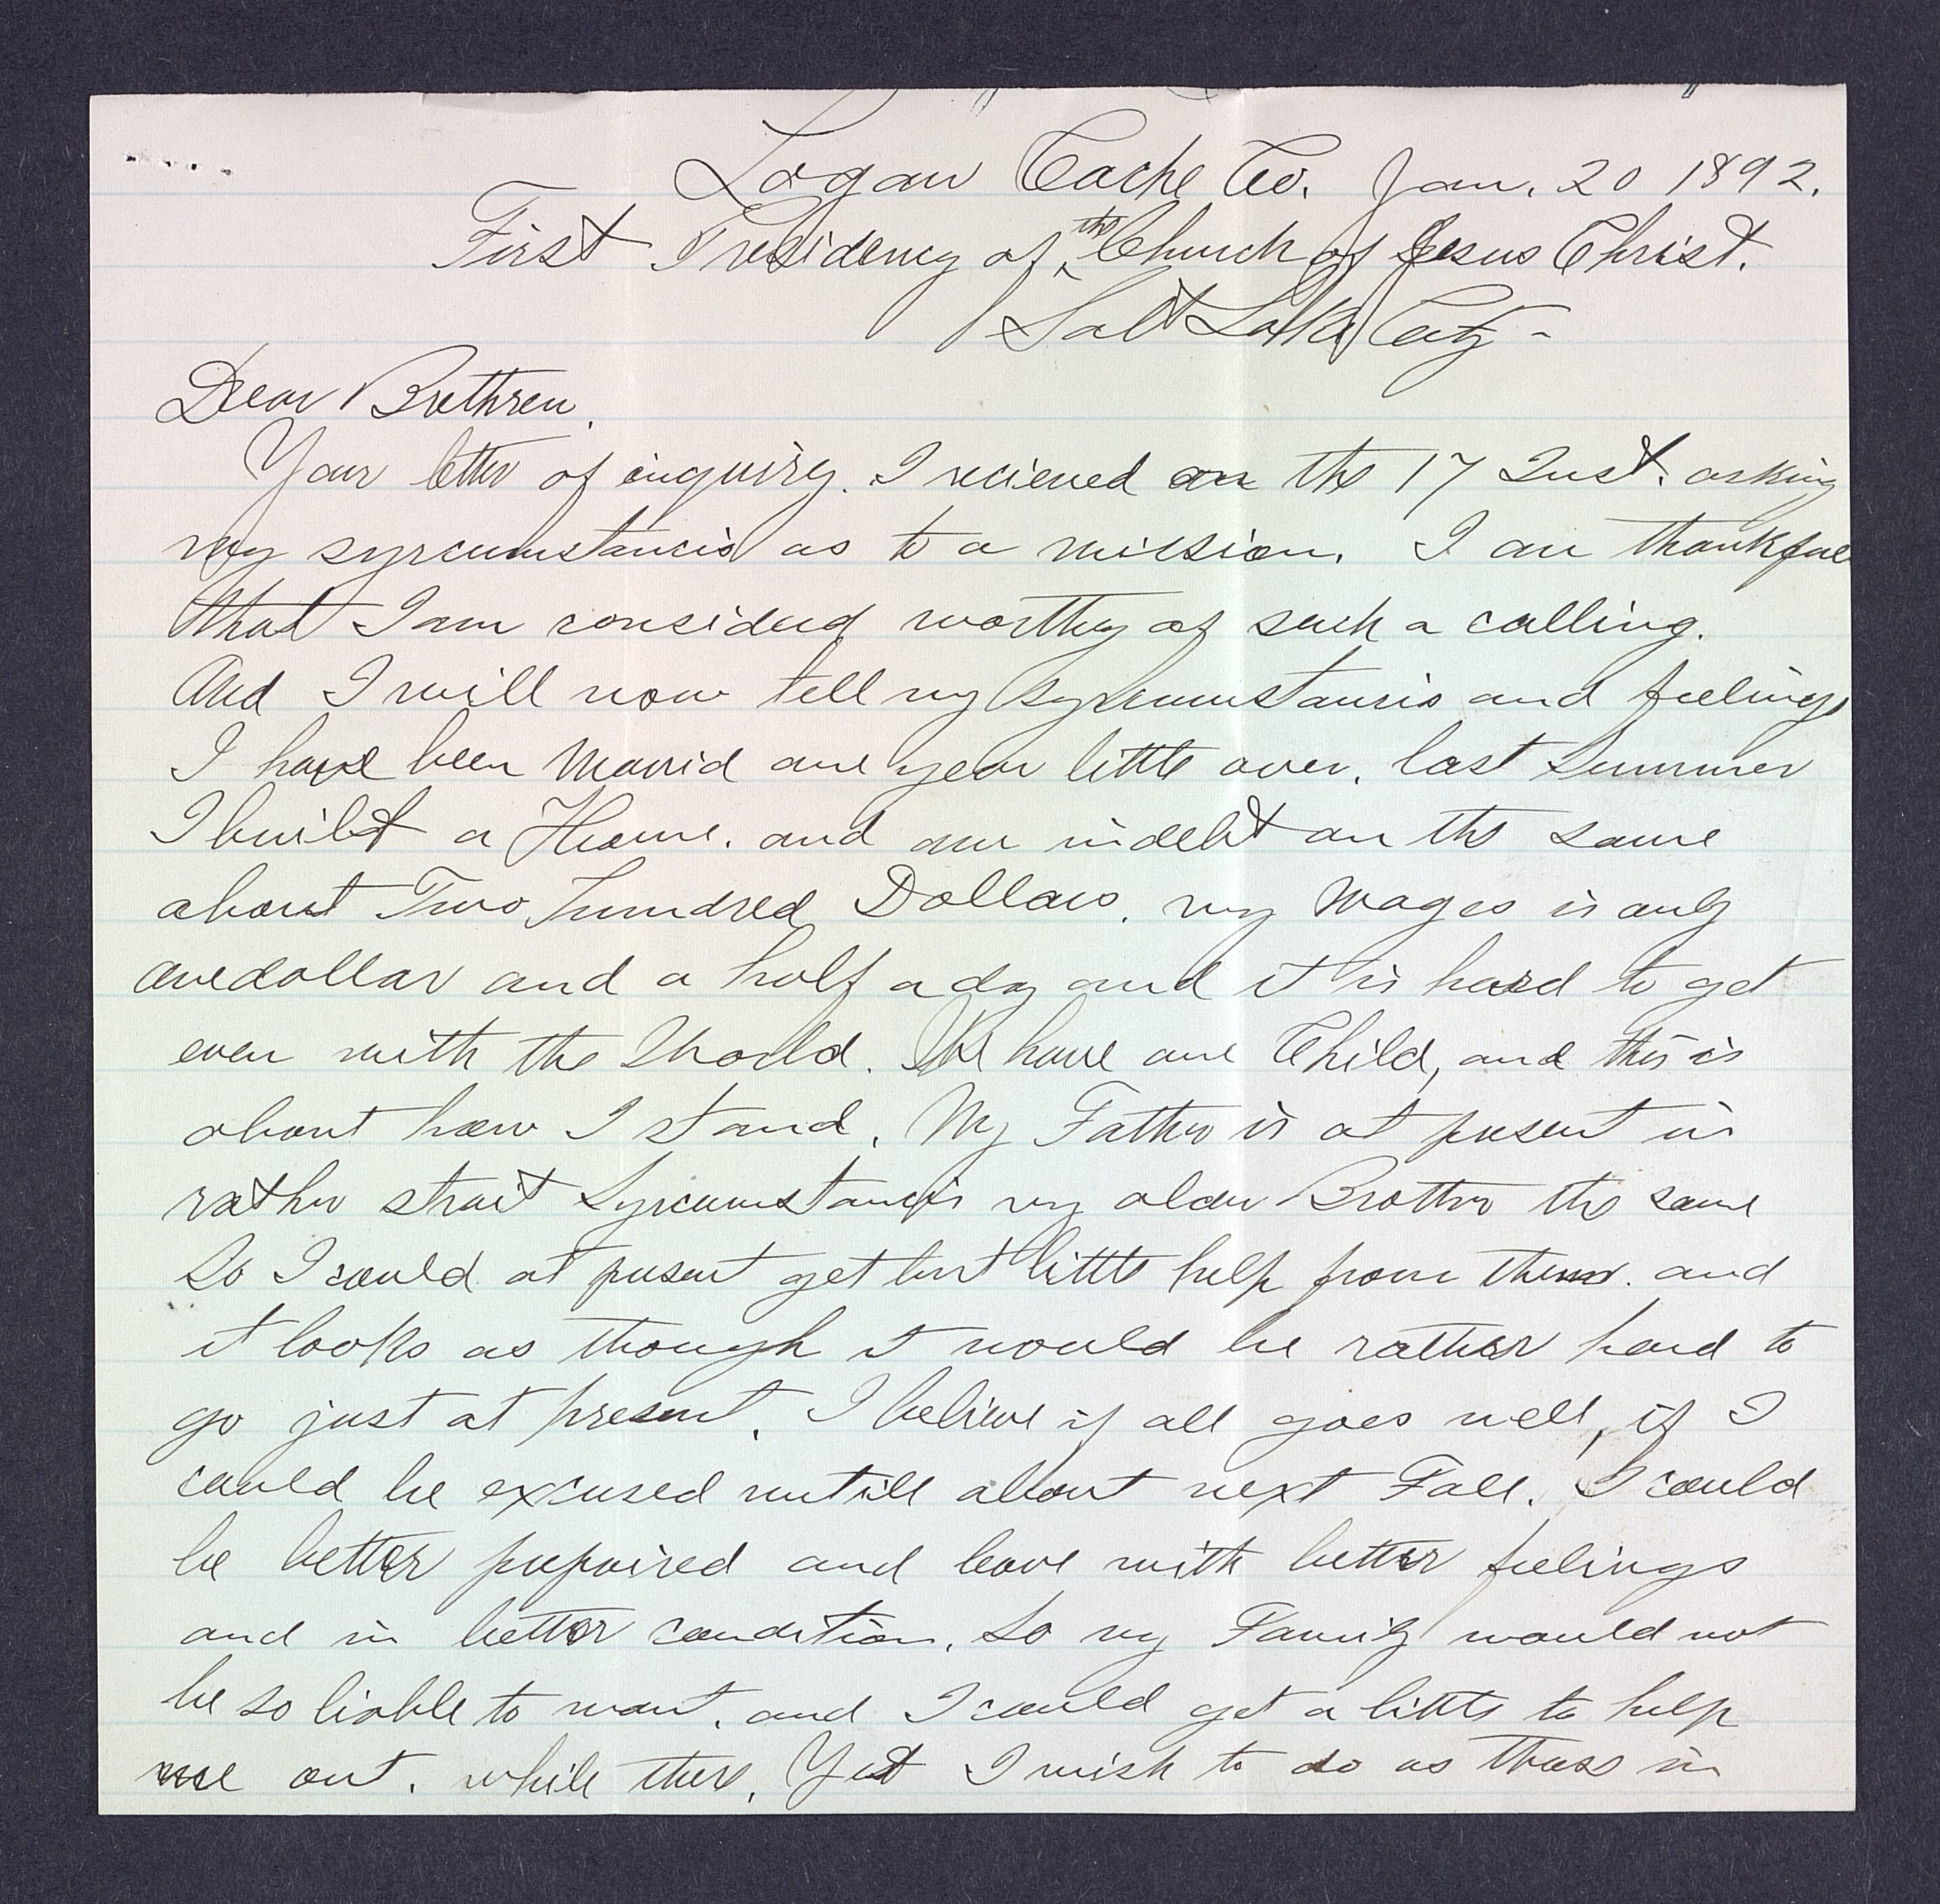 Logan Cache Co. Jan. 20 1892.
First Presidency of the Church of Jesus Christ.
Salt Lake City -
Dear Brethren.
Your letter of inquiry. I recieved on the 17 Inst. asking
my syrcumstancis as to a mission. I am thankful
that I am considerd worthy of such a calling.
And I will now tell my syrcumstancis and feelings
I have been Marrid one year little over. last Summer
I built a Home. and am indebt on the same
about Two hundred Dollars. my Wages is only
onedollar and a half a day and it is hard to get
even with the World. We have one Child, and this is
about how I stand. My Father is at present in
rather strait Syrcumstancis my older Brother the same
So I could at present get but little help from them. and
it looks as though it would be rather hard to
go just at present. I believe if all goes well, if I
could be excused untill about next Fall. I could
be better prepaired and leave with better feelings
and in better condition. So my Family would not
be so liable to want. and I could get a little to help
me out. while there. Yet I wish to do as those in